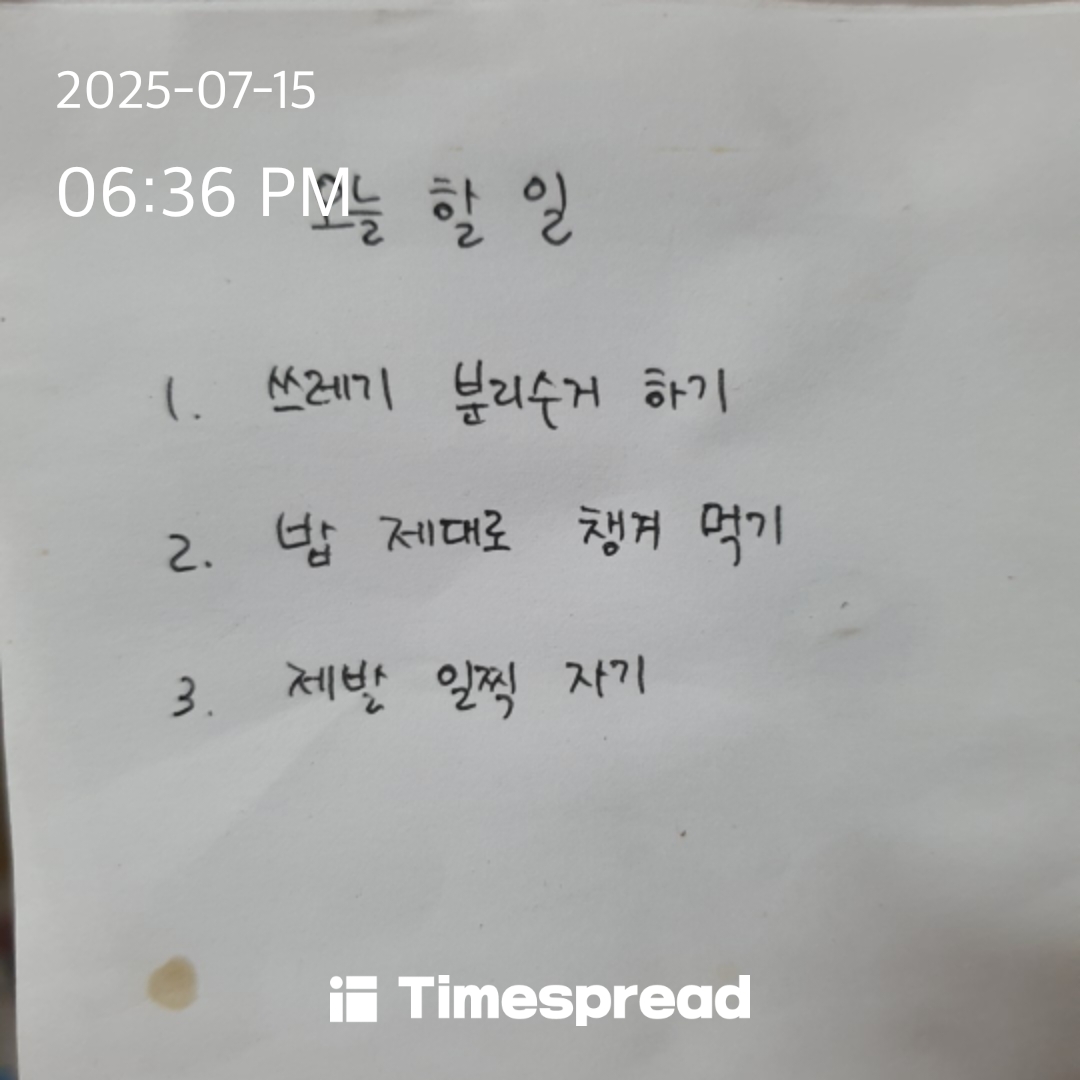 2025-07-15
06:36 PM
오늘 할 일
1. 쓰레기 분리수거 하기
2. 밥 제대로 챙겨 먹기
3. 제발 일찍 자기
Timespread